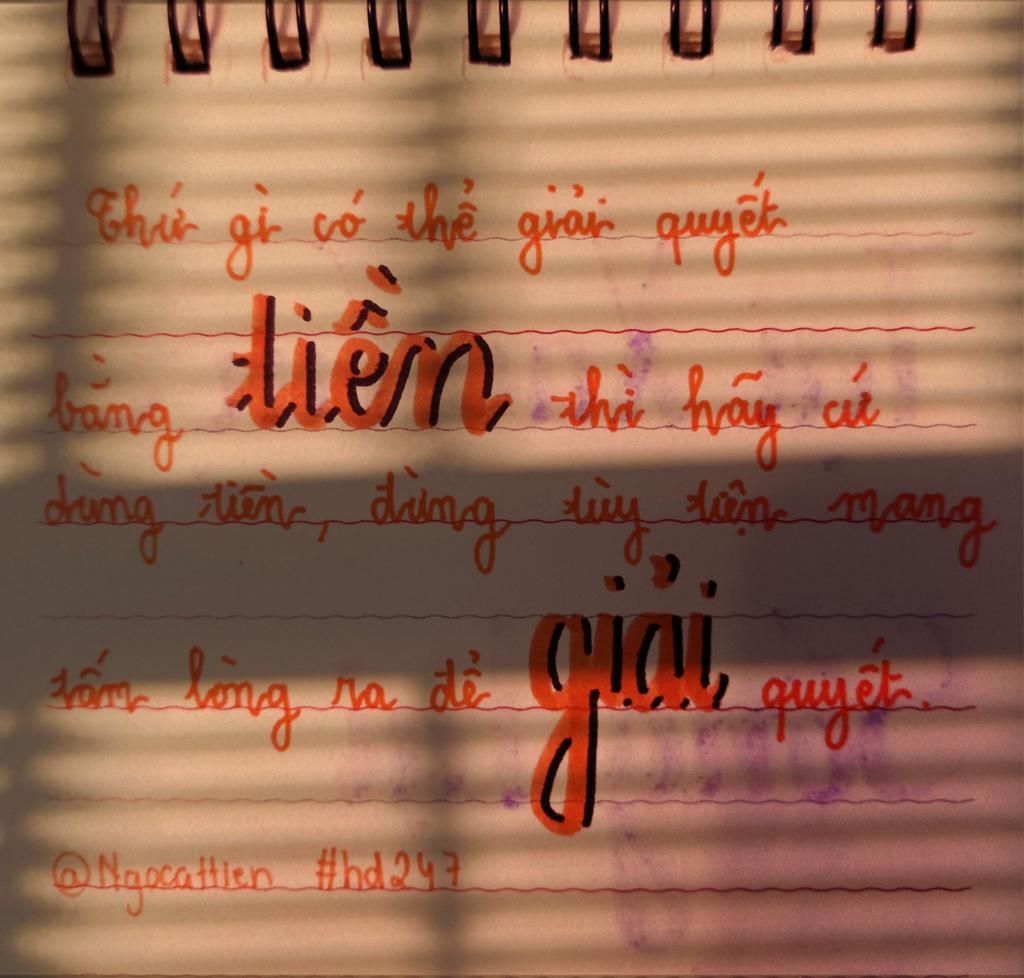 Thứ gì có thể giải quyết
bằng tiền thì hãy cứ
dùng tiền, đừng tùy tiện mang
tấm lòng ra để giải quyết.
@Ngocattien #hd247